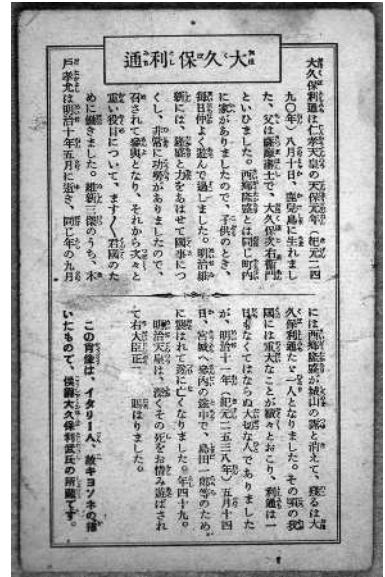 大久保利通
大久保利通は仁孝天皇の天保元年（紀元二四
九〇年）八月十日、鹿児島に生れまし
た。父は薩摩藩士で、大久保次右衛門
といひました。西郷隆盛とは同じ町内
に家がありましたので、子供のときから
毎日仲よく遊んで過しました。明治維
新には、隆盛と力をあはせて國事につ
くし、非常に功勞がありましたので、
召されて參與となり、それから次々と
重い役目について、ます〳〵君國のた
めに働きました。維新三傑のうち、木
戸孝允は明治十年五月に逝き、同じ年の九月
には西郷隆盛が城山の露と消えて、殘るは大
久保利通たゞ一人となりました。その頃の我
國には重大なことが續々とおこり、利通は一
日もなくてはならぬ大切な人でありました
が、明治十一年（紀元二五三八年）五月十四
日、宮城へ參内の途中で、島田一郎等のため
に襲はれて遂に亡くなりました。年四十九。
明治天皇は、深くその死をお惜み遊ばされ
て右大臣正二 賜はりました。
この肖像は、イタリー人、故キヨソネの描
いたもので、侯爵大久保利武氏の所藏です。